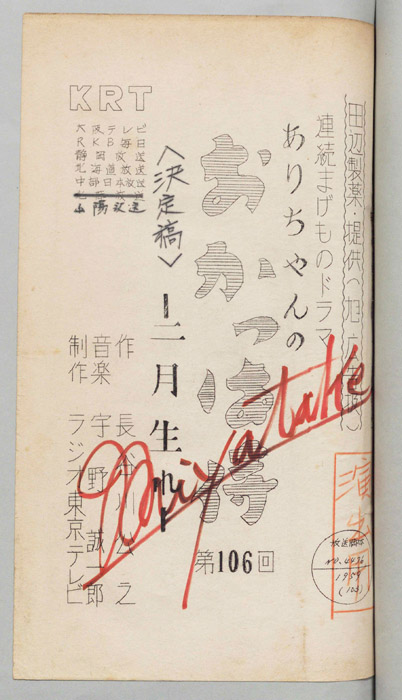 KRT
大阪テレビ
RKB毎日
静岡放送
北海道放送
中部日本放送
山陽放送
田辺製薬・提供
連続まげものドラマ
ありちゃんの
おかっぱ侍
〈決定稿〉
―二月生れ―
第106回
作 長谷川公之
音楽 宇野誠一郎
制作 ラジオ東京テレビ
Miyatake
放送開始
NO.